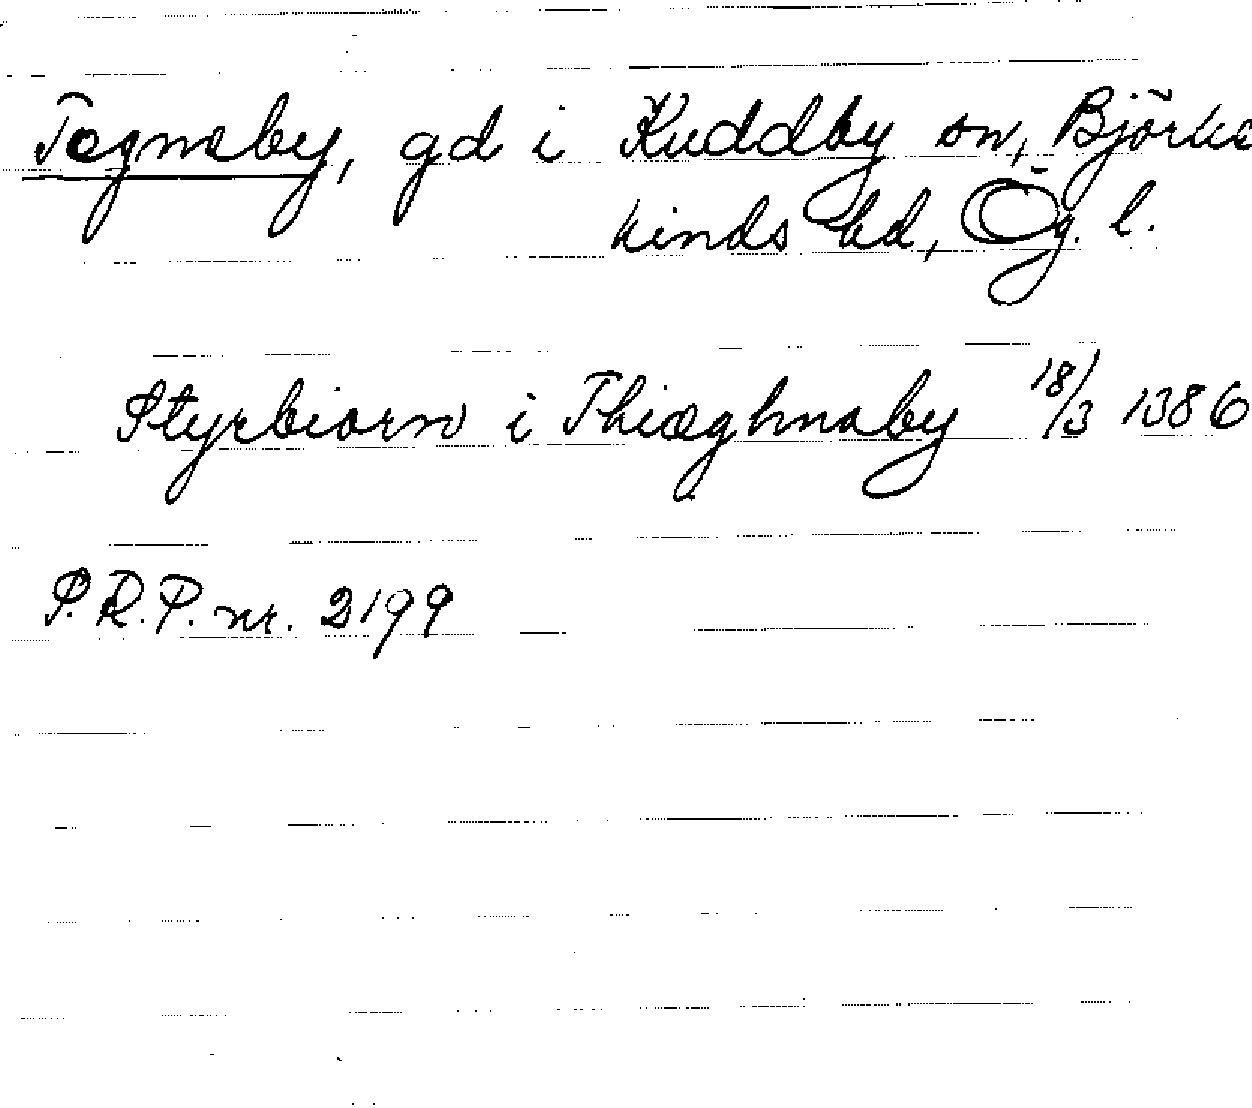 Tegneby, gd i Kuddby sn, Björke
kinds hd, Ög. l.
Styrbiorn i Thiæghnaby 18/3 1386
S.R.P. nr. 2199